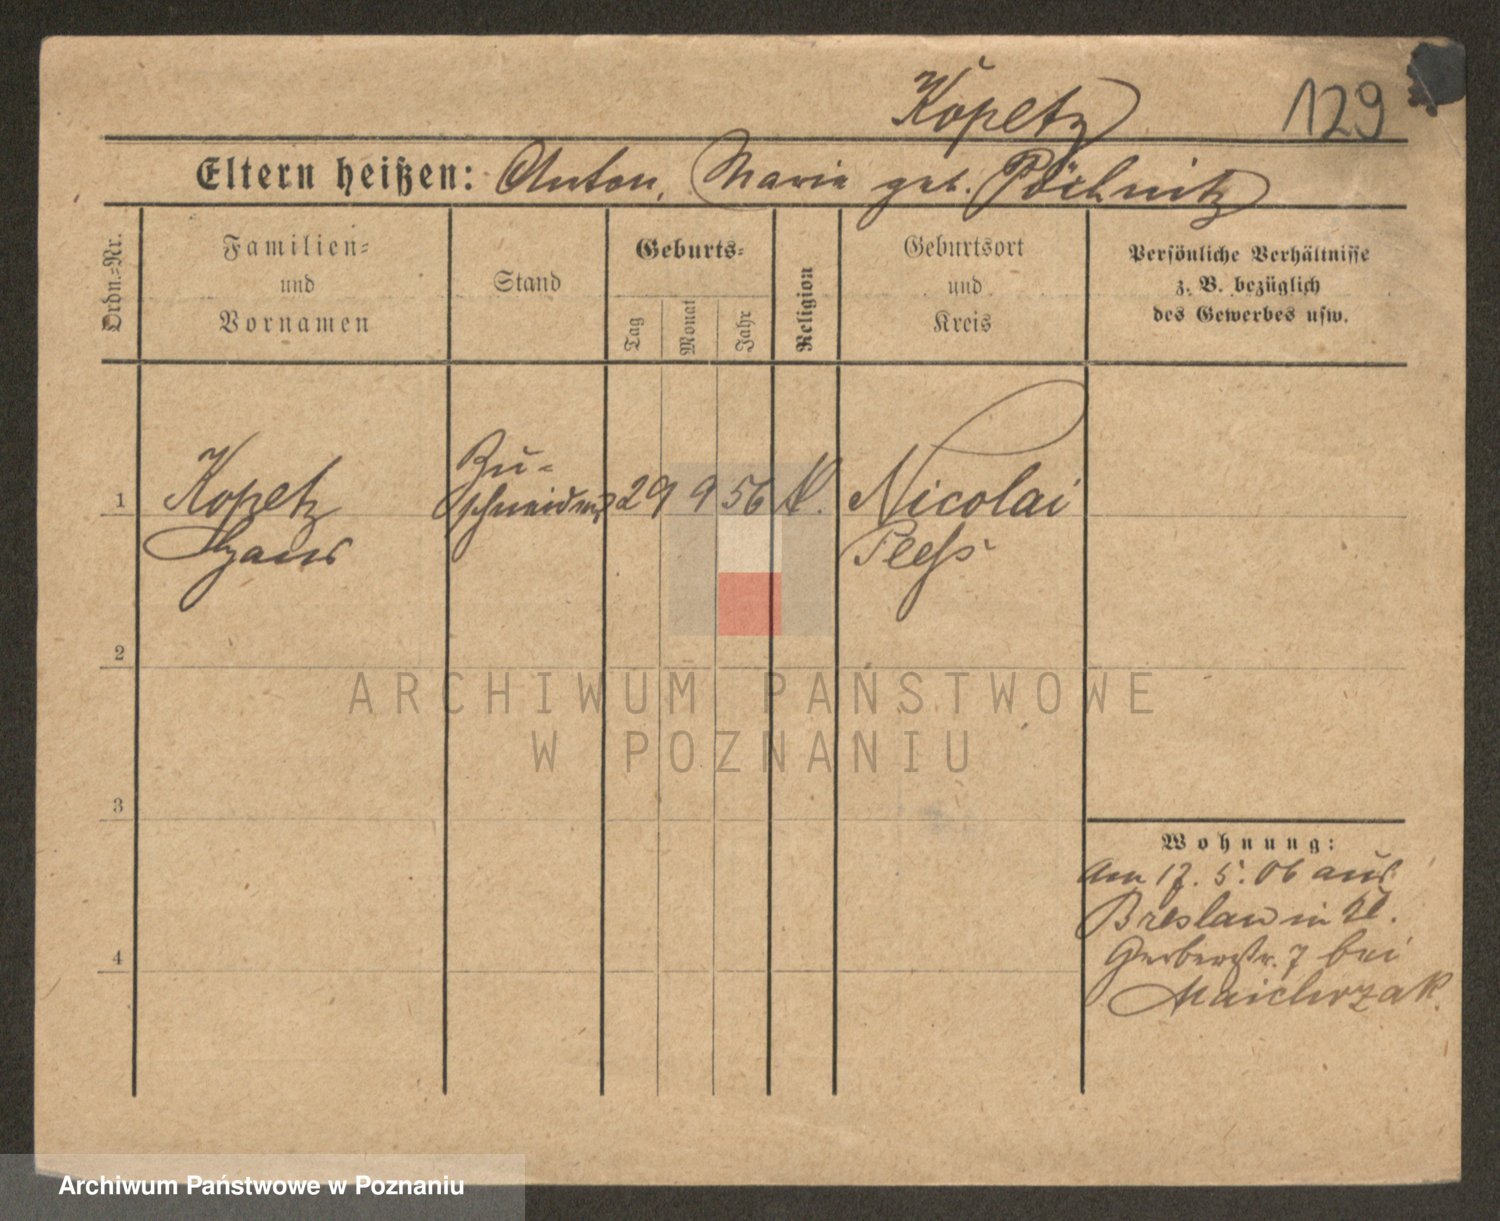 Kopetz 129
Eltern heißen: Anton, Maria geb. Pöchnitz
Ordn.-Nr.
Familien-
und
Vornamen
Stand
Geburts-
Tag
Monat
Jahr
Religion
Geburtsort
und
Kreis
Persönliche Verhältnisse
z. B. bezüglich
des Gewerbes usw.
1
Kopetz
Hans
Zu-
schneider
29 9 56 K.
Nicolai
Pleß
2
3
4
Wohnung:
Am 17. 5. 06 aus
Breslau in Kl.
Gerberstr. 7 bei
Maichrzak.
ARCHIWUM PAŃSTWOWE
W POZNANIU
Archiwum Państwowe w Poznaniu